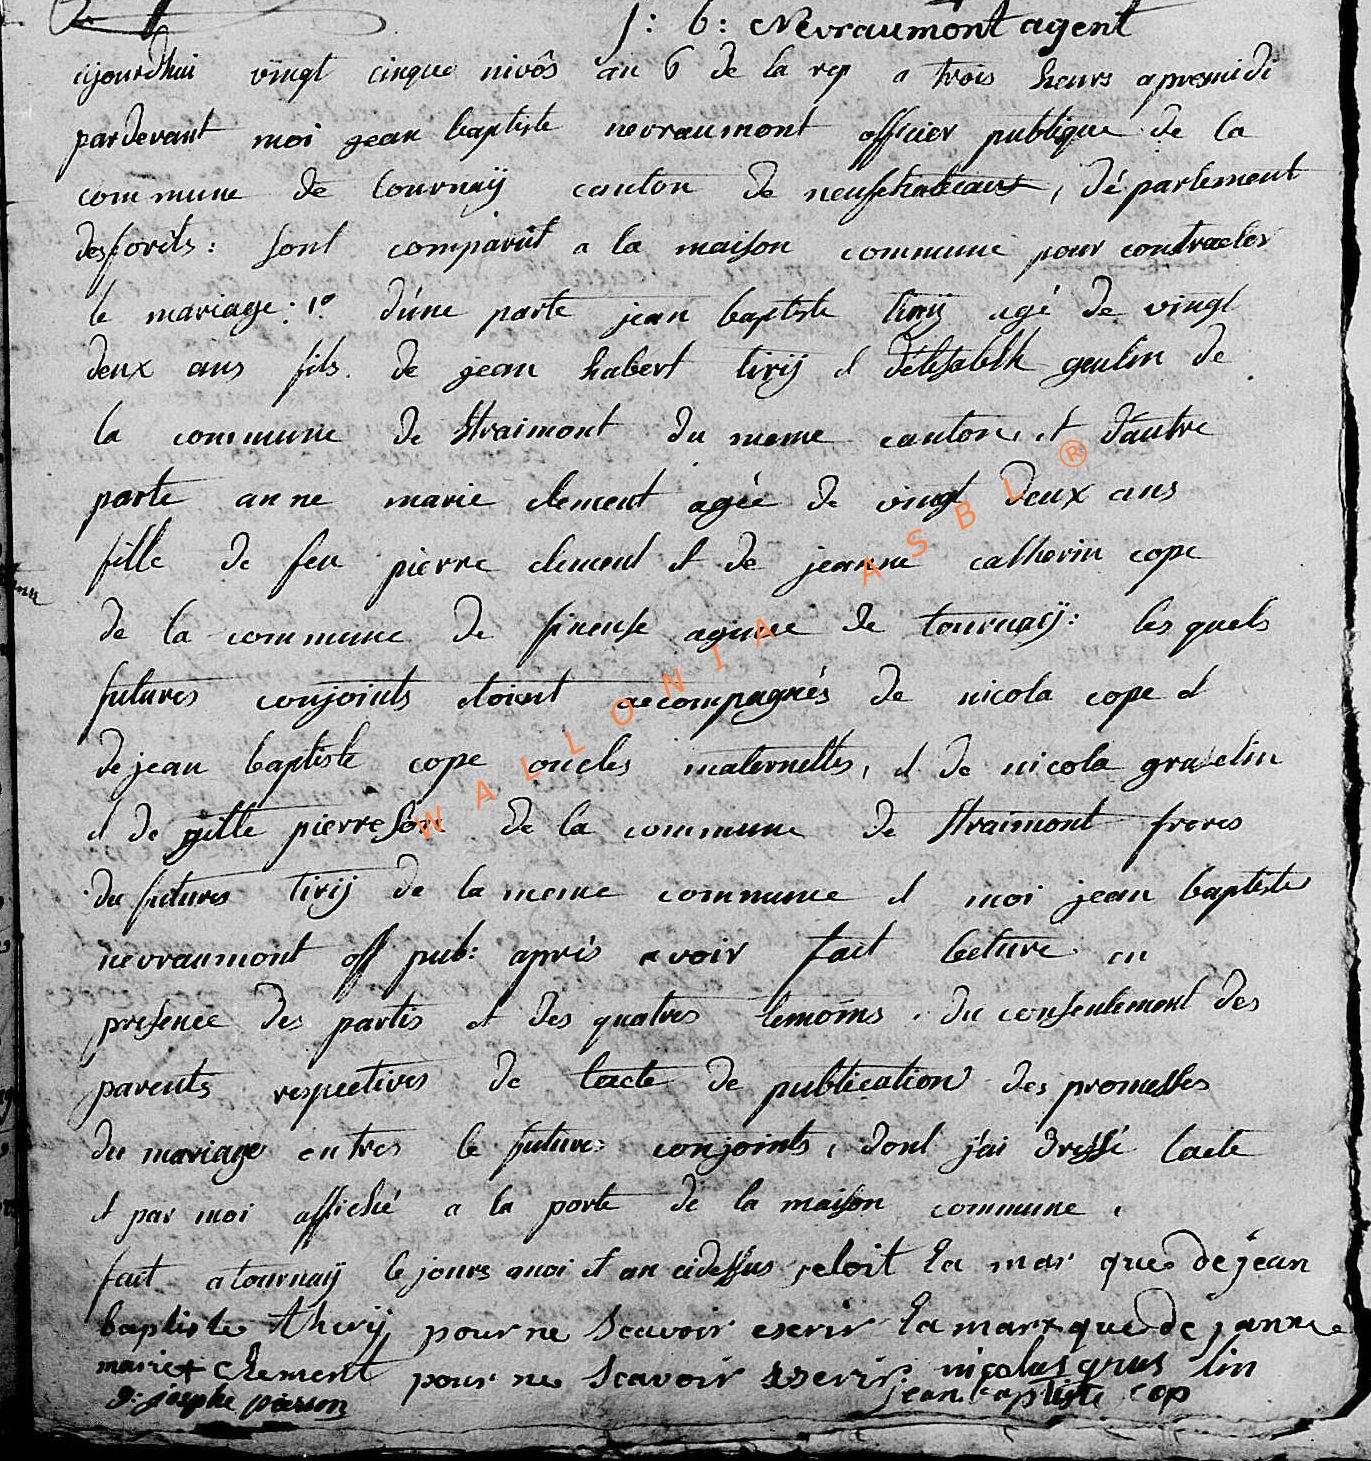 J: b: Nevraumont agent
ajourdhui vingt cinque nivôs an 6 de la rep a trois heurs apresmidi
pardevant moi jean baptiste nevraumont officier publique de la
commune de tournaÿ canton de neufchateaux, département
desforêts: sont comparût a la maison commune pour contracter
le mariage: 1º d'une parte jean baptiste tirij agé de vingt
deux ans fils de jean habert tirij et délisabeth geulin de
la commune de Straimont du meme canton, et d'autre
parte anne marie clement agée de vingt deux ans
fille de feu pierre clement et de jeanne catherin cope
de la commune de fineuse de tournaÿ: les quels
futures conjoints etoient accompagnés de nicola cope et
de jean baptiste cope oncles maternelles, et de nicola graselin
et de gille pierreson de la commune de Straimont freres
du futures tirij de la meme commune et moi jean baptiste
nevraumont off pub: aprés avoir fait lecture en
presence des partis et des quatres temoins, du consentement des
parents respectives de lacte de publication des promesses
du mariage entres le futures conjoints, dont j'ai dressé lacte
et par moi affiché a la porte de la maison commune,
fait a tournaÿ le jours moi et an cidessus, etoit la mar que de jean
baptiste thirij pour ne Scavoir escrir la mar+que de janne
marie+ Clement pour ne Scavoir escrir: nicolas lin
g: josephe pierson jean baptiste cop
WALLONIA ASBL ®